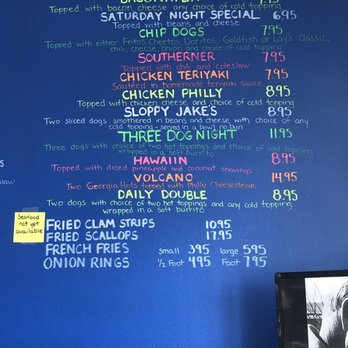 Topped with bacon, cheese any choice of cold topping
SATURDAY NIGHT SPECIAL 6.95
Topped with beans and cheese
CHIP DOGS 7.95
Topped with either Fritos, Cheetos, Doritos, Goldfish or Lay's Classic,
chili, cheese, onion and choice of cold topping
SOUTHERNER 7.95
Topped with chili and coleslaw
CHICKEN TERIYAKI 7.95
Sauteed in homemade teriyaki sauce
CHICKEN PHILLY 8.95
Topped with chicken cheese and choice of cold topping
SLOPPY JAKES 8.95
Two sliced dogs smothered in beans, and cheese, with choice of any
cold topping - served in a bowl no bun
THREE DOG NIGHT 11.95
Three dogs with choice of two hot toppings and any choice of cold
wrapped in a soft burrito
HAWAIIN 8.95
Topped with diced pineapple and coconut shavings
VOLCANO 14.95
Two Georgia Hots topped with Philly Cheesesteak
DAILY DOUBLE 8.95
Two dogs with choice of two hot toppings and any cold topping
wrapped in a soft burrito
Seafood
not yet
available
FRIED CLAM STRIPS 10.95
FRIED SCALLOPS 17.95
FRENCH FRIES small 3.95 large 5.95
ONION RINGS 1/2 Foot 4.95 Foot 7.95